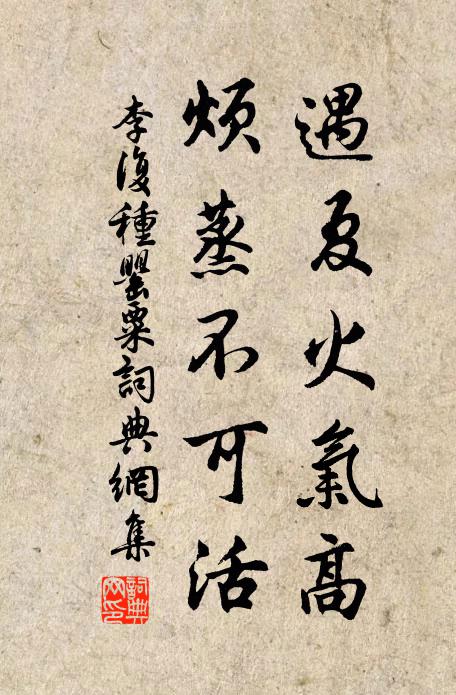 遇夏火氣高
煩蒸不可活
李復種罌粟詞典網集
詞典网印